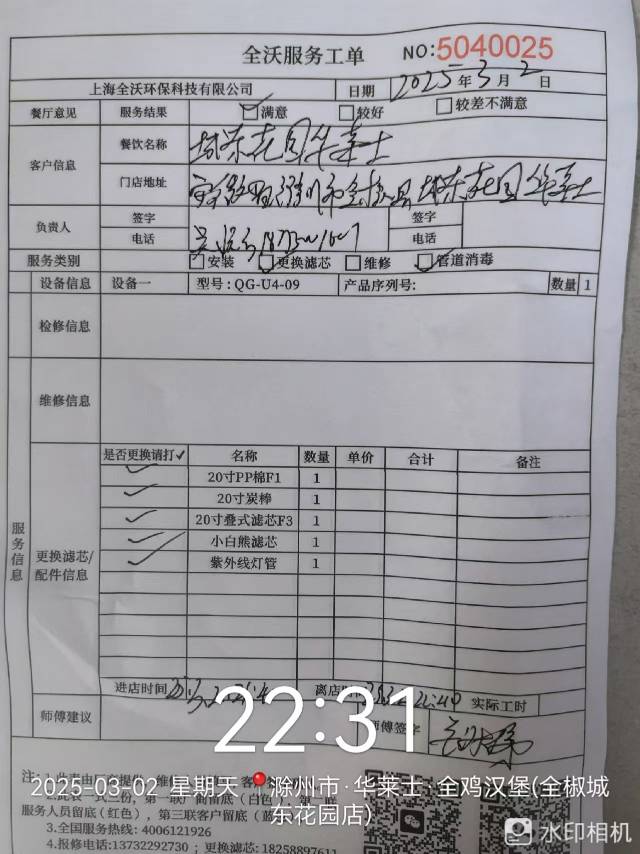 全沃服务工单 NO:5040025
上海全沃环保科技有限公司 日期 2025年3月2日
餐厅意见 服务结果 ☑满意 □较好 □较差不满意
客户信息 餐饮名称 城东花园华莱士
门店地址 安徽省滁州市全椒县城东花园华莱士
负责人 签字 签字
电话 电话
服务类别 □安装 ☑更换滤芯 □维修 ☑管道消毒
设备信息 设备一 型号:QG-U4-09 产品序列号: 数量 1
检修信息
维修信息
服务信息
更换滤芯/配件信息
是否更换请打✓ 名称 数量 单价 合计 备注
✓ 20寸PP棉F1 1
✓ 20寸炭棒 1
✓ 20寸叠式滤芯F3 1
✓ 小白熊滤芯 1
✓ 紫外线灯管 1
进店时间 离店时间 实际工时
师傅建议 师傅签字
22:31
2025-03-02 星期天 滁州市·华莱士·全鸡汉堡(全椒城东花园店)
2.此表一式三份，第一联厂商留底(白色)，第二联
服务人员留底(红色)，第三联客户留底(蓝
3.全国服务热线: 4006121926
4.报修电话:13732292730 ; 更换滤芯: 18258897611
水印相机